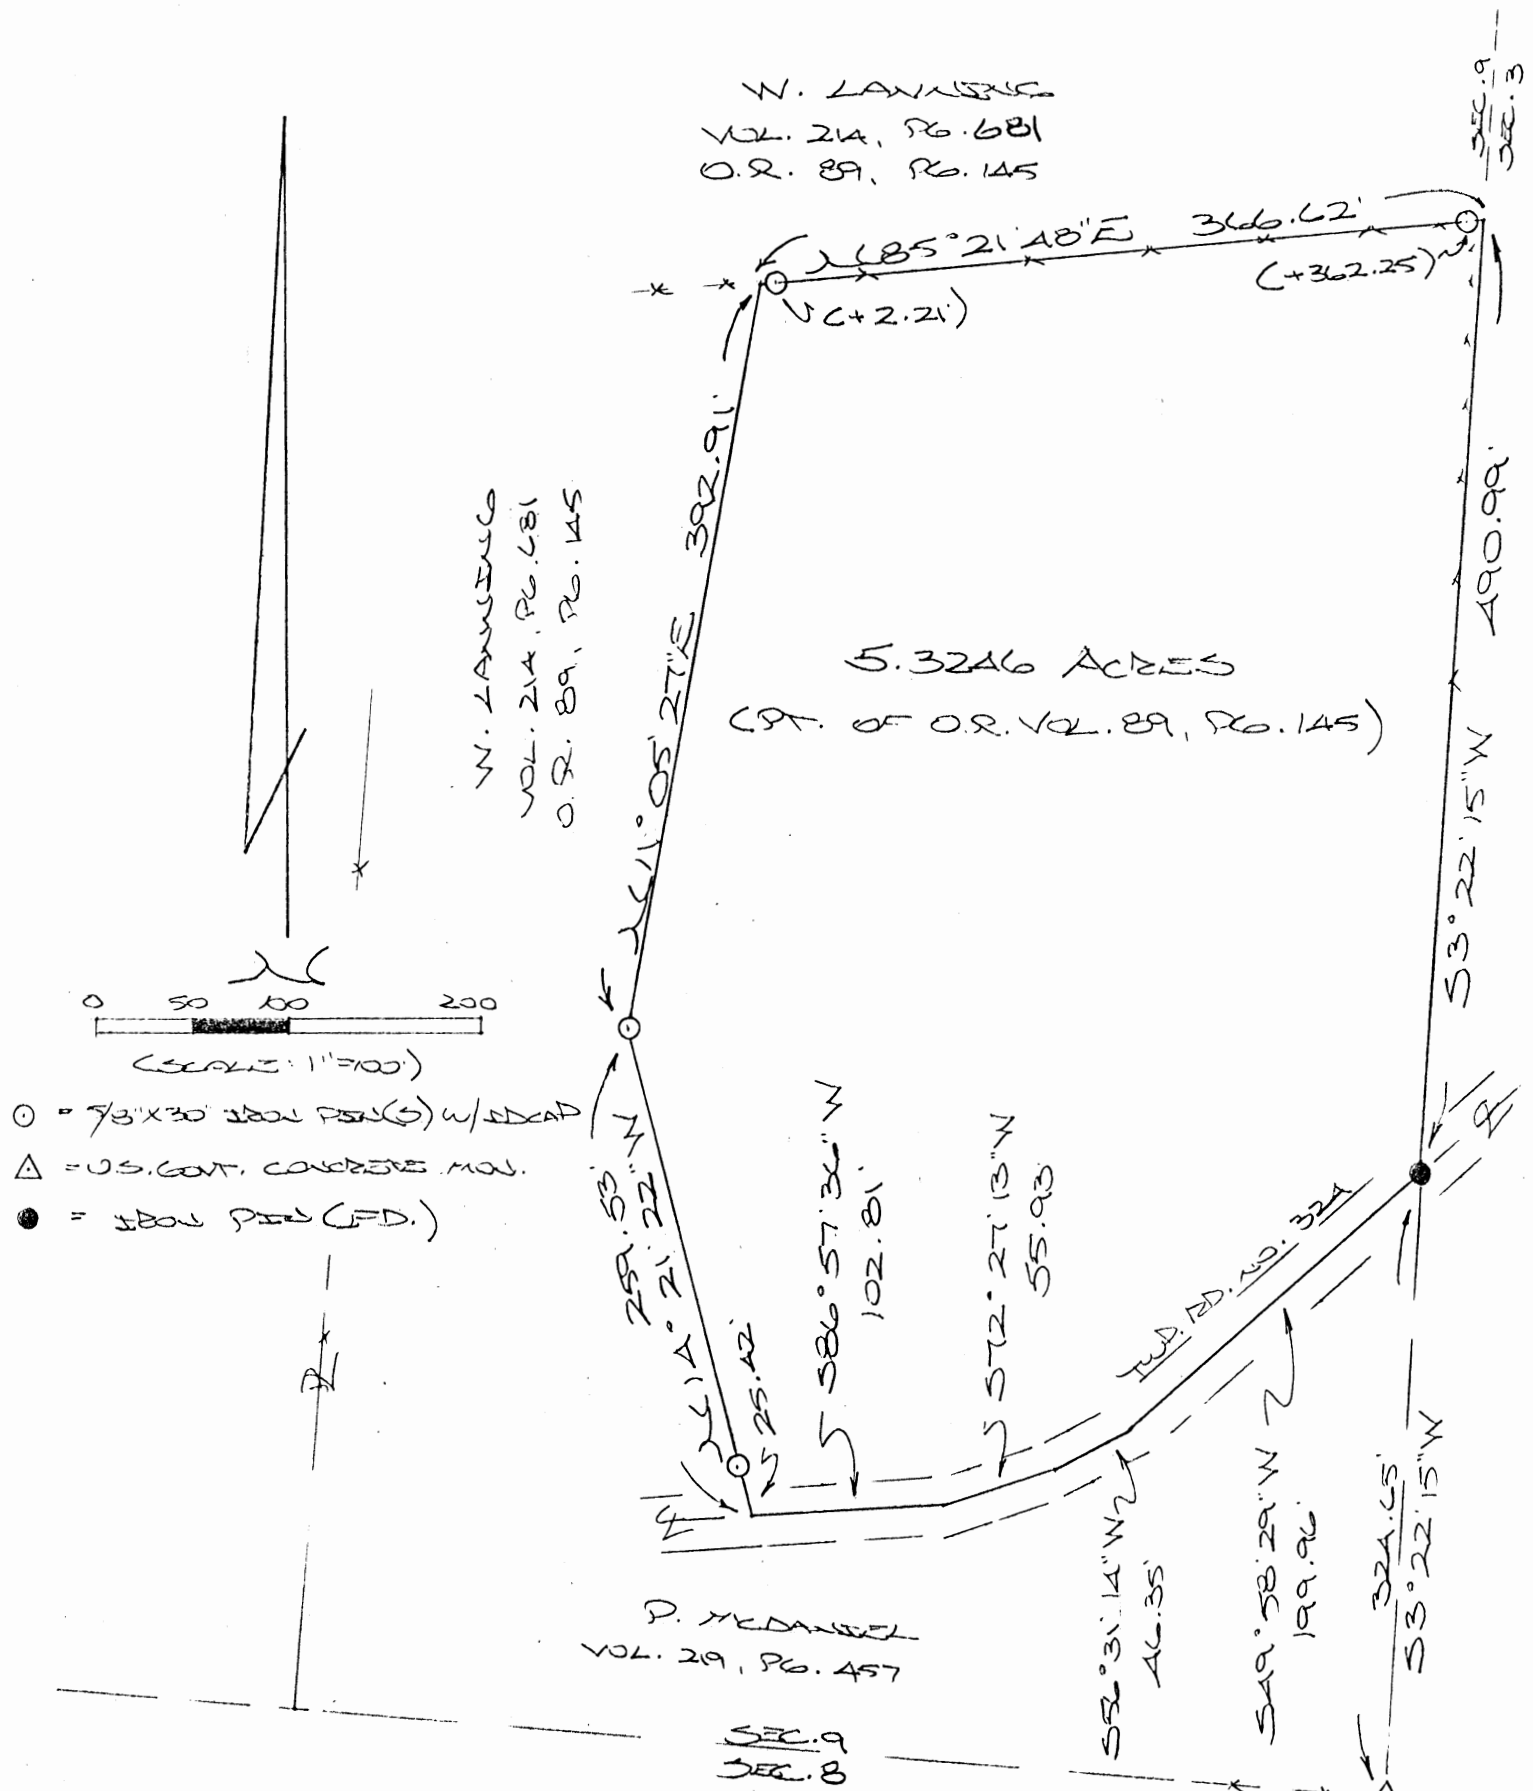 W. LANNING
VOL. 214, PG. 681
O.R. 89, PG. 145
SEC. 9
SEC. 3
N 85° 21' 48" E 366.62'
(+2.21')
(+362.25')
N 11° 05' 27" E 392.91'
W. LANNING
VOL. 214, PG. 681
O.R. 89, PG. 145
490.99'
S 3° 22' 15" W
5.3246 ACRES
(PT. OF O.R. VOL. 89, PG. 145)
N
0 50 100 200
(SCALE: 1"=100')
= 5/8"X30" IRON PIN(S) W/IDCAP
= U.S. GOVT. CONCRETE MON.
= IRON PIN (FD.)
259.53'
N 14° 21' 22" W
25.42'
S 86° 57' 36" W
102.81'
S 72° 27' 13" W
55.93'
TWP. RD. NO. 324
S 56° 31' 14" W
46.35'
S 49° 58' 29" W
199.96'
324.65'
S 3° 22' 15" W
P. MCDANIEL
VOL. 219, PG. 457
SEC. 9
SEC. 8